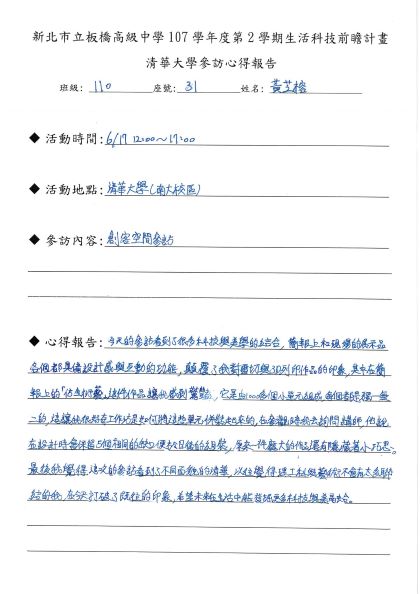 新北市立板橋高級中學 107 學年度第 2 學期生活科技前瞻計畫
清華大學參訪心得報告
班級: 110 座號: 31 姓名: 黃芷榕
◆ 活動時間: 6/17 12:00~17:00
◆ 活動地點: 清華大學(南大校區)
◆ 參訪內容: 創客空間參訪
◆ 心得報告: 今天的參訪看到了很多科技與美學的結合,簡報上和現場的展示品
各個都具備設計感與互動的功能,顛覆了我對雷切與3D列印作品的印象,其中在簡
報上的「仿生」這件作品讓我感到驚艷,它是由1000多個小單元組成每個都是獨一無
二的,這讓我很好奇工作站是如何將這些單元拼起來的,在參觀時我去詢問講師,他說
在設計時會保留相同的缺口便於日後的組裝,原來一件龐大的作品還有隱藏著小巧思。
最後我覺得這次的參訪看到了不同面貌的清華,以往覺得理工科與藝術不會有太多聯
結的我,在今天打破了既往的印象,希望未來在生活中能發現更多科技與美的結合。